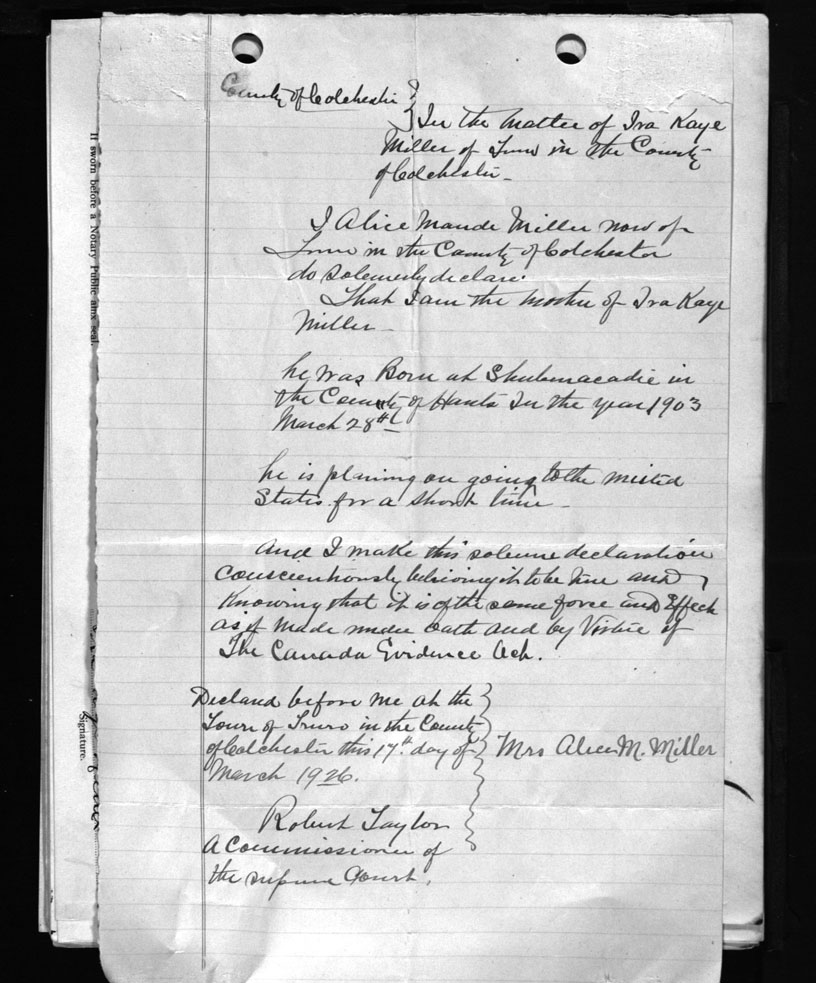 County of Colchester
In the matter of Ira Kaye
Miller of Truro in the County
of Colchester -
I Alice Maude Miller now of
Truro in the County of Colchester
do solemnly declare.
That I am the mother of Ira Kaye
Miller -
he was Born at Shubenacadie in
the County of Hants In the year 1903
March 28th
he is planing on going to the
States for a short time -
And I make this solemn declaration
conscientiously believing it to be true and
Knowing that it is of the same force and Effect
as if made under oath and by Virtue of
The Canada Evidence Act.
Declared before me at the
Town of Truro in the County
of Colchester this 17th day of
March 1926.
Mrs Alice M. Miller
Robert Taylor
A Commissioner of
the supreme Court.
If sworn before a Notary Public affix seal.
Signature.